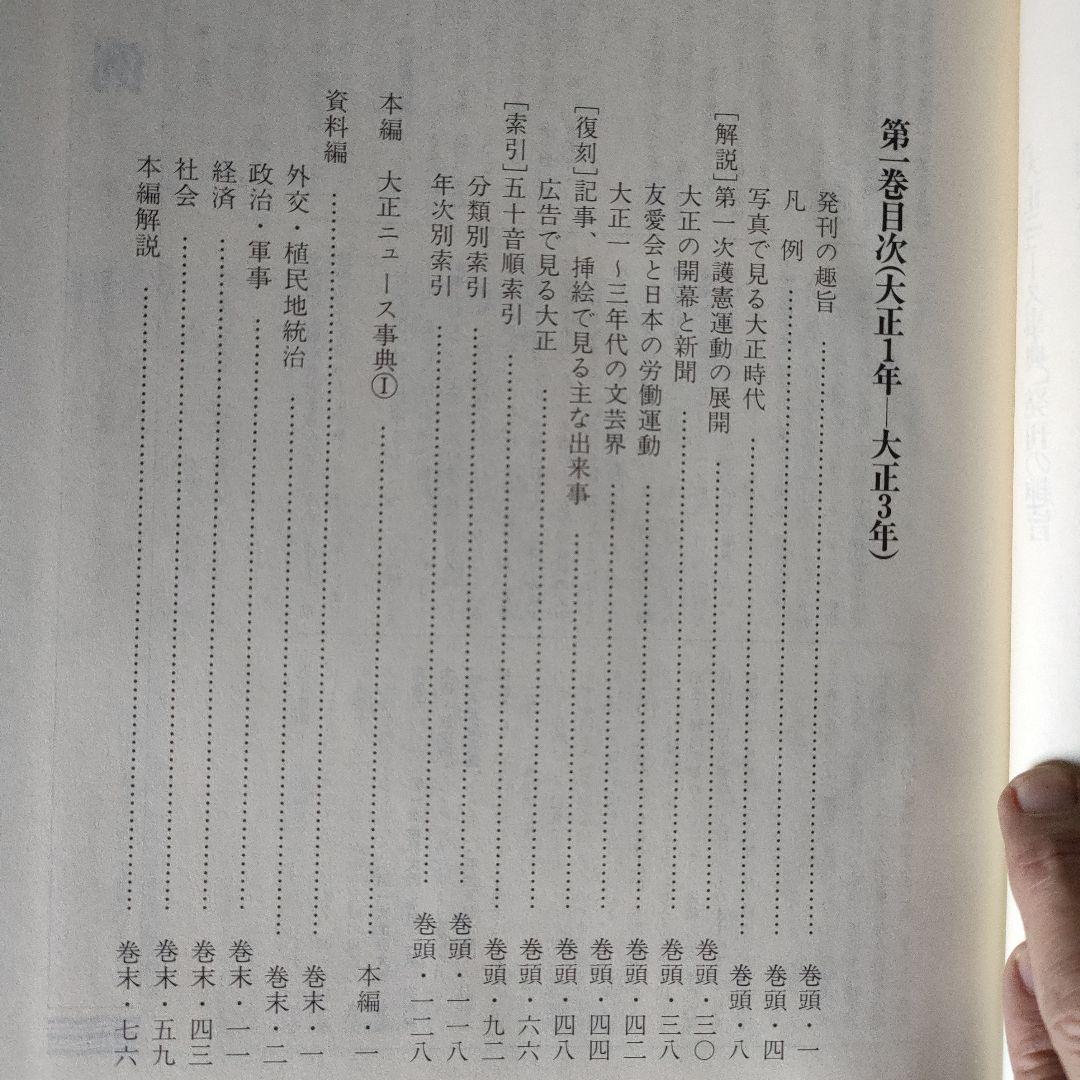 第一巻目次(大正1年―大正3年)
発刊の趣旨……巻頭・一
凡例……巻頭・四
写真で見る大正時代……巻頭・八
[解説]第一次護憲運動の展開……巻頭・三〇
大正の開幕と新聞……巻頭・三八
友愛会と日本の労働運動……巻頭・四二
大正一〜三年代の文芸界……巻頭・四四
[復刻]記事、挿絵で見る主な出来事……巻頭・四八
広告で見る大正……巻頭・六六
[索引]五十音順索引……巻頭・九二
分類別索引……巻頭・一一八
年次別索引……巻頭・一二八
本編 大正ニュース事典Ⅰ……本編・一
資料編……巻末・一
外交・植民地統治……巻末・二
政治・軍事……巻末・一一
経済……巻末・四三
社会……巻末・五九
本編解説……巻末・七六